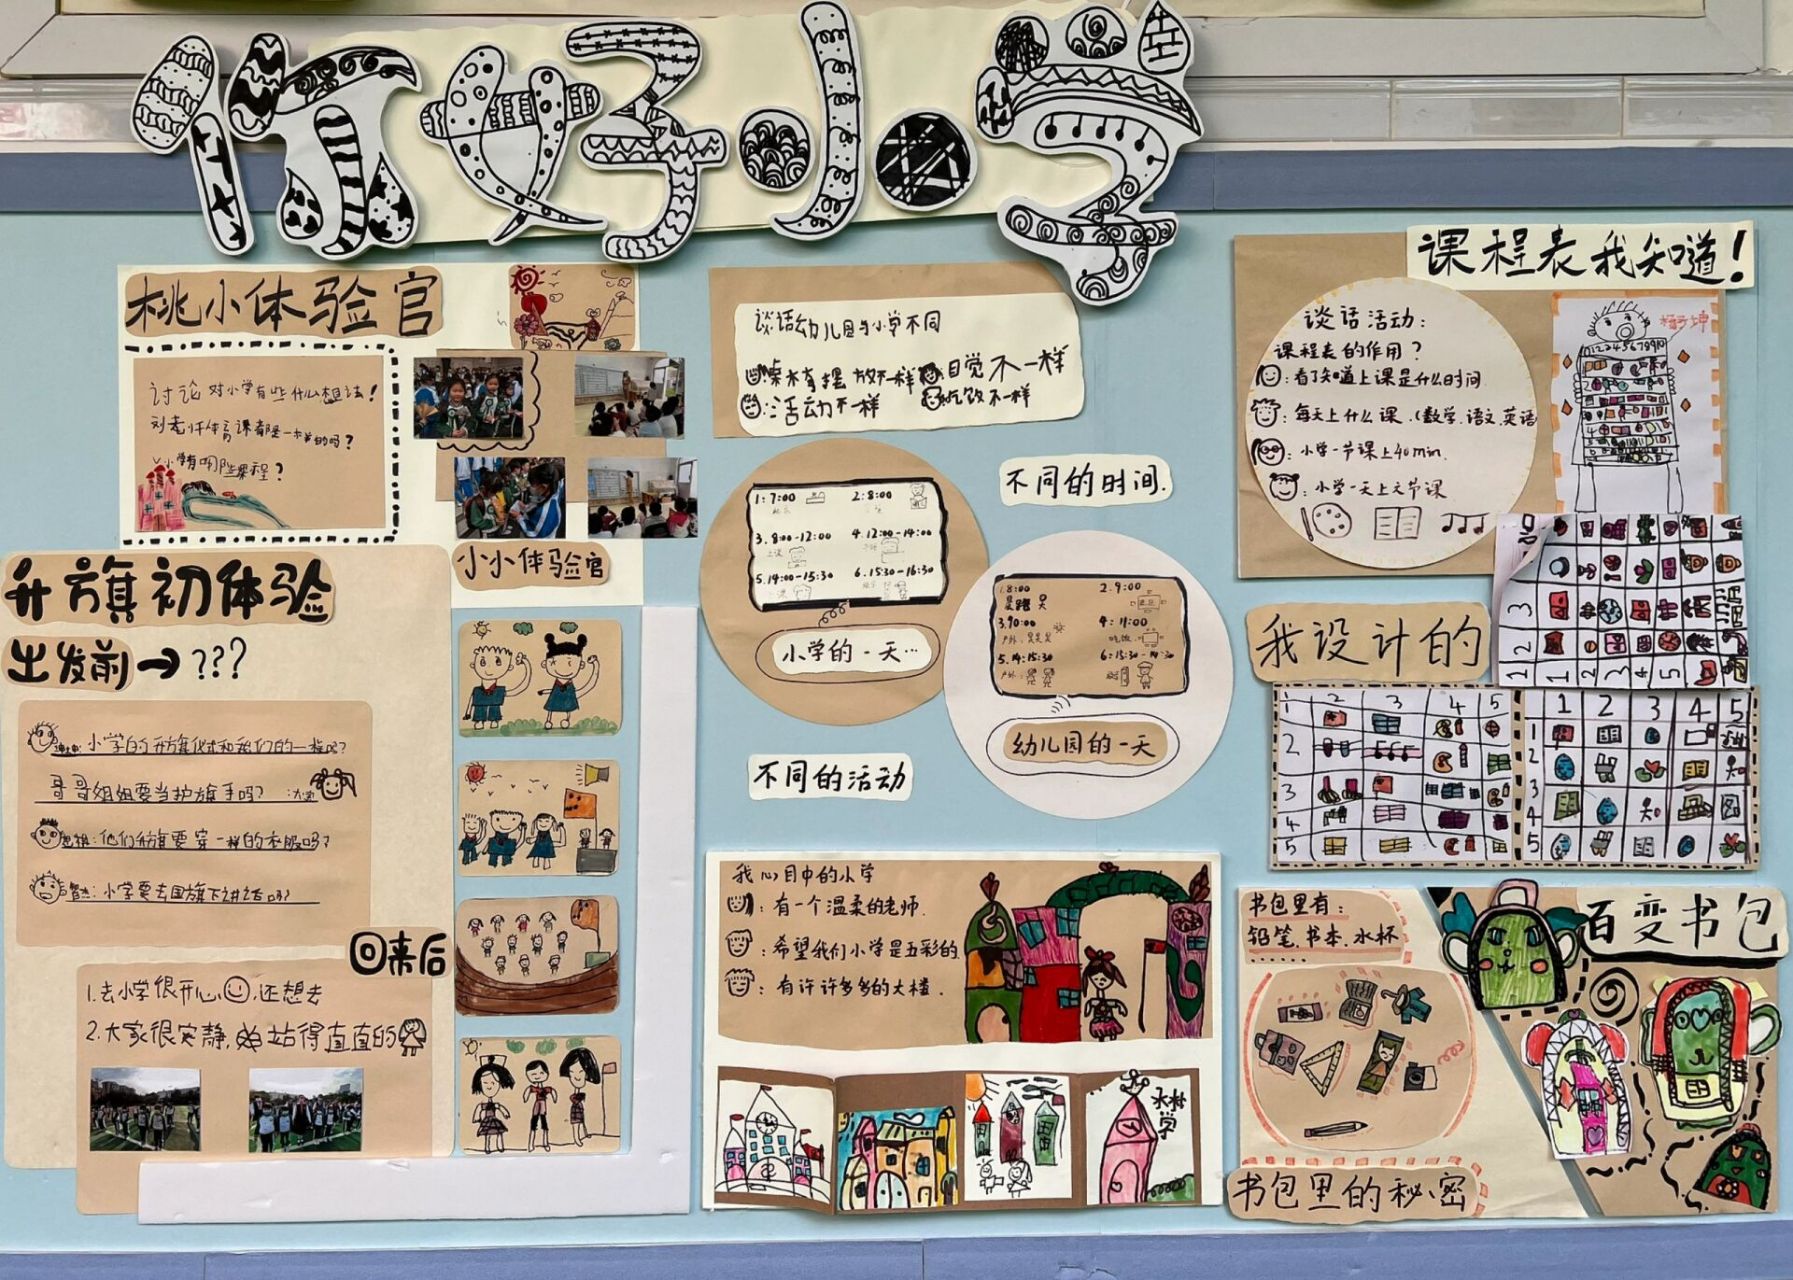 你好小学
桃小体验官
讨论对小学有些什么想法!
刘老师体育课都是一样的吗?
小学有哪些课程?
小小体验官
升旗初体验
出发前→???
小学的升旗仪式和我们的一样吗?
哥哥姐姐要当护旗手吗?
他们升旗要穿一样的衣服吗?
小学要去国旗下讲话吗?
回来后
1.去小学很开心,还想去
2.大家很安静,站得直直的
谈话幼儿园与小学不同
桌椅摆放不一样
自觉不一样
:活动不一样
吃饭不一样
不同的时间.
1:7:00 2:8:00
3.8:00-12:00 4.12:00-14:00
上课
5.14:00-15:30 6.15:30-16:30
小学的一天…
1.8:00 2.9:00
3.10:00 4:11:00
户外: 吃饭:
5.14:15:30
户外:
幼儿园的一天
不同的活动
我心目中的小学
:有一个温柔的老师.
:希望我们小学是五彩的.
:有许许多多的大楼.
课程表我知道!
谈话活动:
课程表的作用?
:看了知道上课是什么时间
:每天上什么课.(数学.语文.英语
:小学一节课上40min.
:小学一天上六节课
12345678910
我设计的
1 2 3 4 5
2
3
4
5
1 2 3 4 5
1
2
3
4
5
书包里有:
铅笔.书本.水杯
百变书包
书包里的秘密